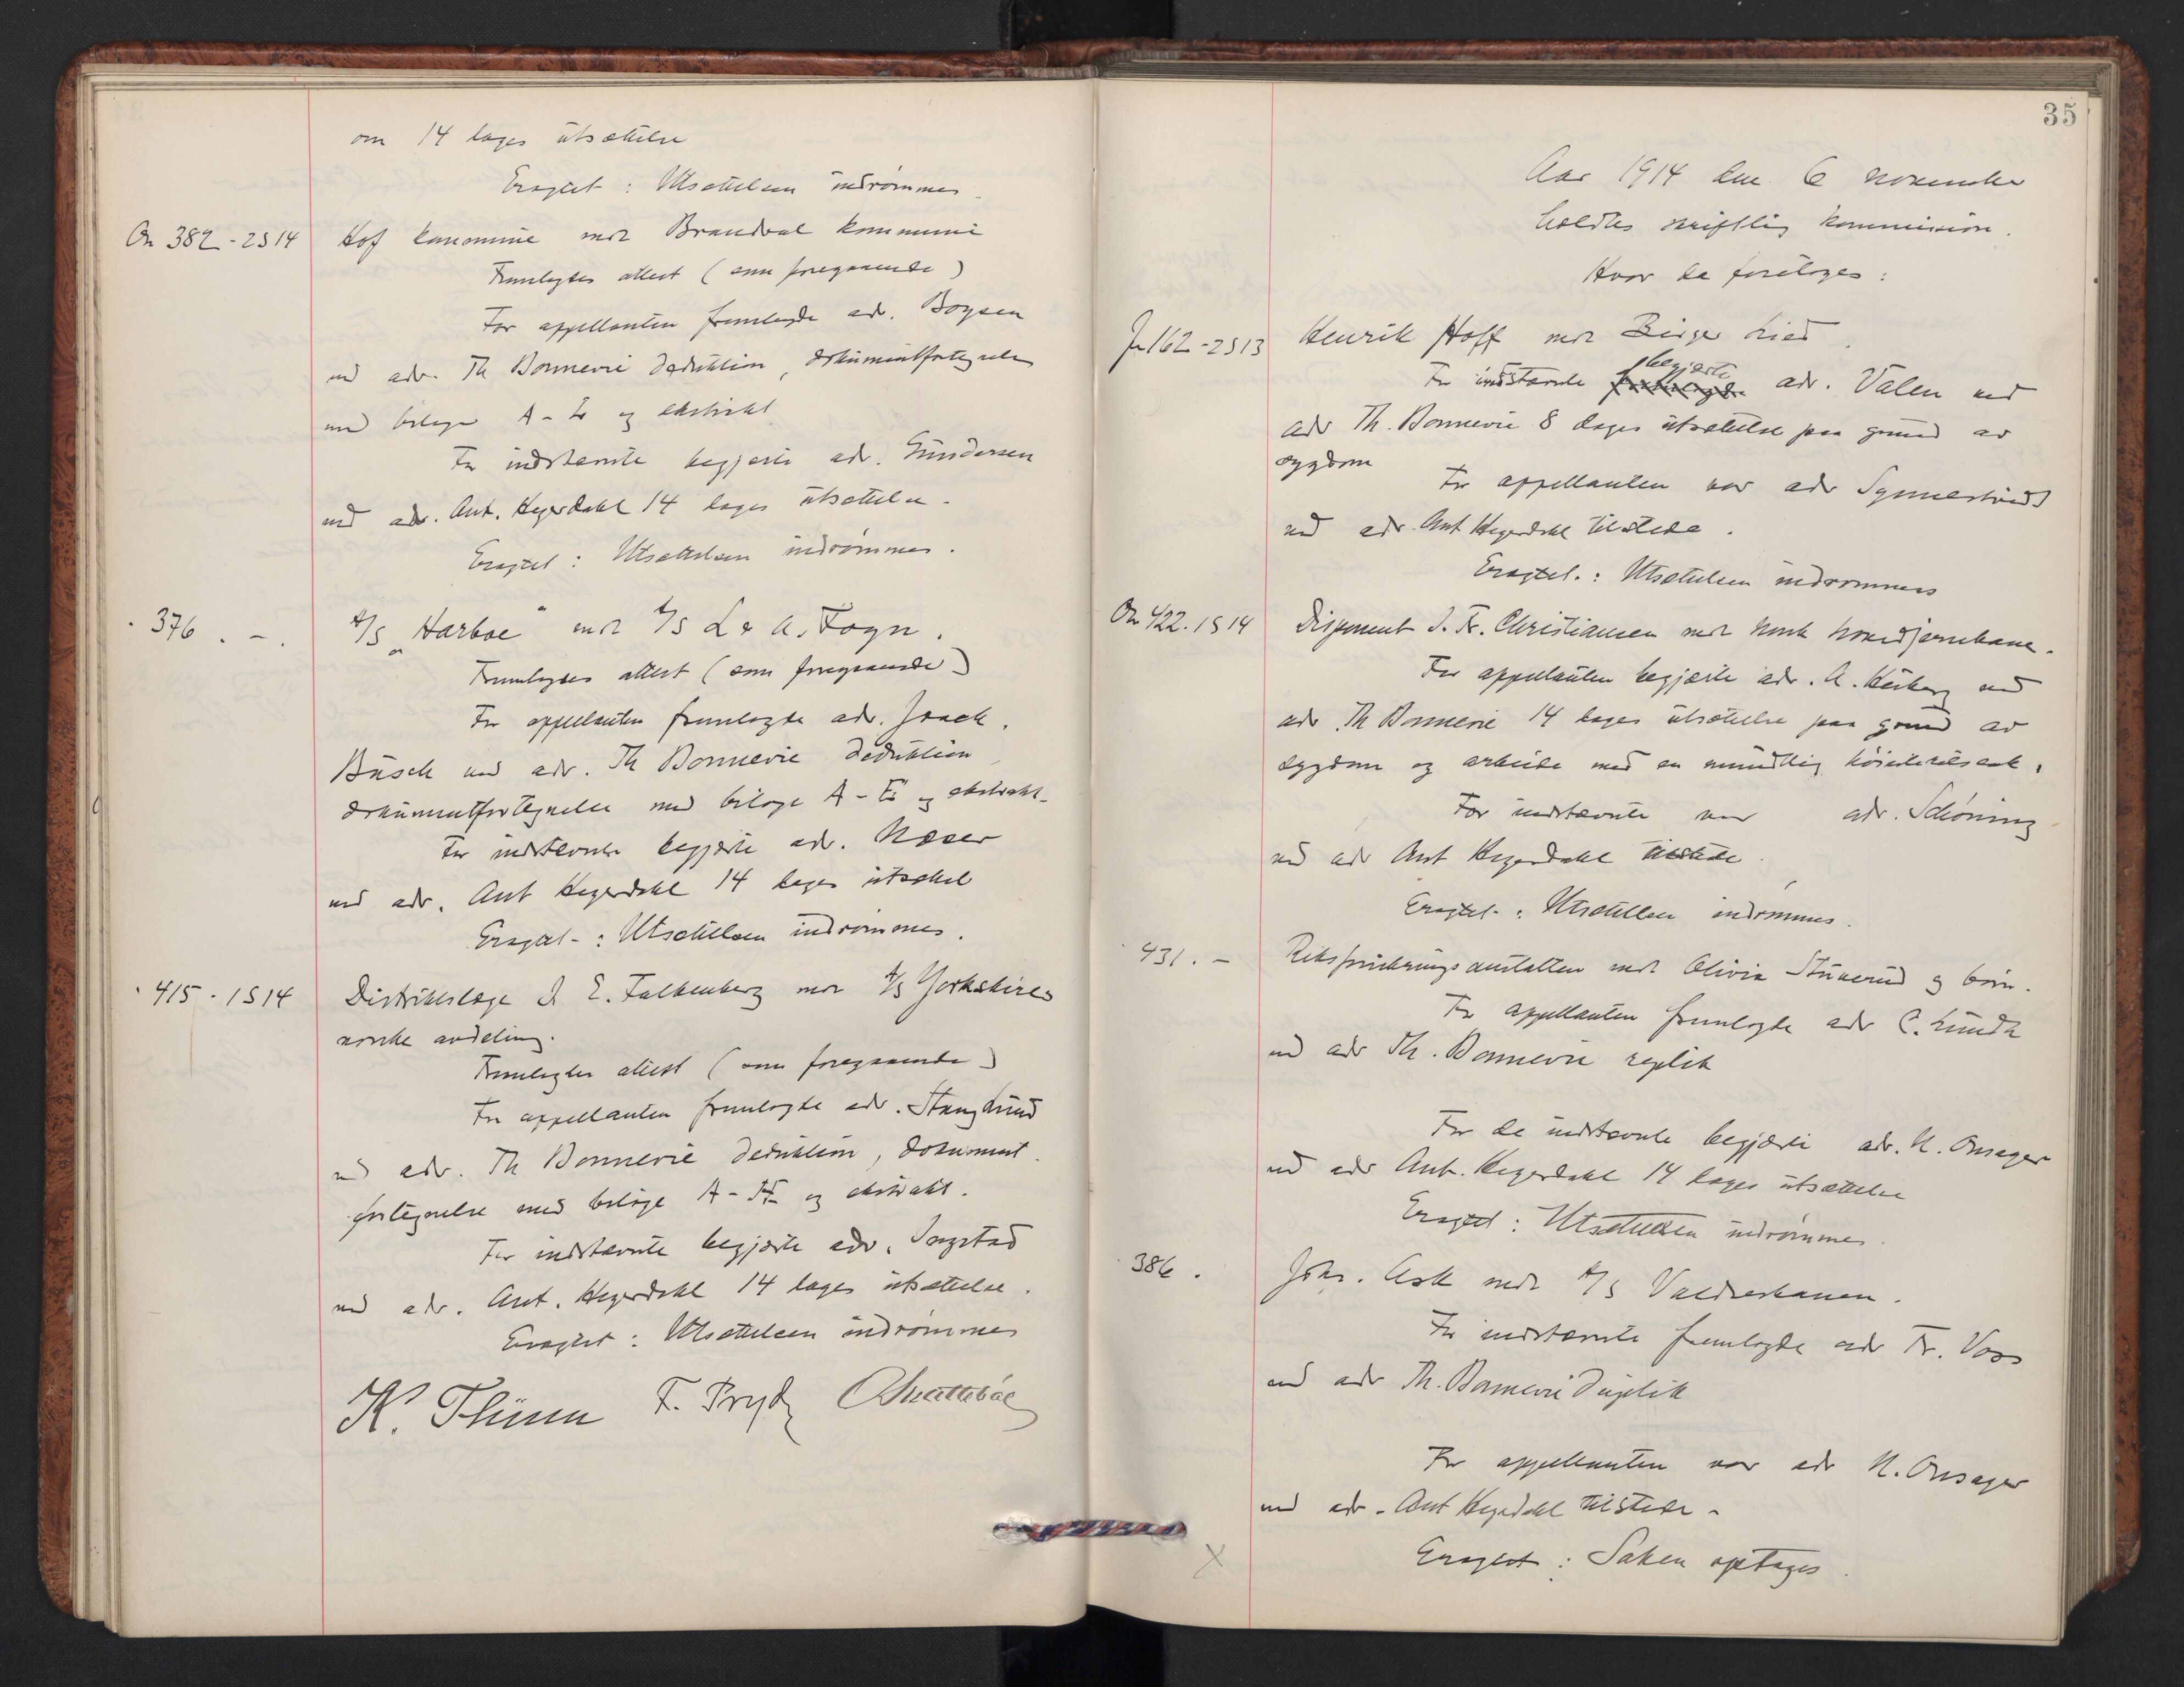 om 14 dages utsættelse
Eragtet: Utsættelsen indrømmes
On 382-2S14 Hof kommune mot Brandval kommune
Fremlagdes attest (som foregaaende)
For appellanten fremlagde adv. Boysen
ved adv. Th Bonnevie deduktion, dokumentfortegnelse
med bilage A-L og ekstrakt
For indstevnte begjærte adv. Gundersen
ved adv. Ant. Hegerdahl 14 dages utsættelse.
Eragtet: Utsættelsen indrømmes.
" 376. -. A/S "Harboe" mot A/S L & A. Fogn.
Fremlagdes attest (som foregaaende)
For appellanten fremlagde adv. Joach.
Busch ved adv. Th Bonnevie deduktion
dokumentfortegnelse med bilage A-E og ekstrakt.
For indstevnte begjærte adv. Næser
ved adv. Ant Hegerdahl 14 dages utsættel
Eragtet: Utsættelsen indrømmes.
" 415. 1S14 Distriktslæge J E. Falkenberg mot A/S Yorkshires
norske avdeling.
Fremlagdes attest (som foregaaende)
For appellanten fremlagde adv. Stang Lund
ved adv. Th Bonnevie deduktion, dokument-
fortegnelse med bilage A-H og ekstrakt.
For indstevnte begjærte adv. Ingstad
ved adv. Ant. Hegerdahl 14 dages utsættelse.
Eragtet: Utsættelsen indrømmes
K. Thünn F. Prydz
35
Aar 1914 den 6 november
holdtes skriftlig kommission.
Hvor da foretoges:
Jn 162-2S13 Henrik Hoff mot Birger Lied
For indstævnte begjærte adv. Valen ved
adv Th. Bonnevie 8 dages utsættelse paa grund av
sygdom
For appellanten var adv Synnestvedt
ved adv Ant Hegerdahl tilstede.
Eragtet.: Utsættelsen indrømmes
On 422. 1S14 Disponent J. Fr. Christiansen mot Norsk hovedjernbane.
For appellanten begjærte adv. A. Heiberg ved
adv. Th Bonnevie 14 dages utsættelse paa grund av
sygdom og arbeide med en mundtlig høiesteretssak.
For indstævnte var adv. Schjøning
ved adv Ant Hegerdahl tilstede.
Eragtet.: Utsættelsen indrømmes.
" 431. - Riksforsikringsanstalten mot Olivia Stuverud og børn.
For appellanten fremlagde adv C. Lundh
ved adv Th. Bonnevie replik
For de indstevnte begjærte adv. N. Onsager
ved adv Ant. Hegerdahl 14 dages utsættelse
Eragtet: Utsættelsen indrømmes.
" 386. Johs. Ask mot A/S Valdresbanen.
For indstævnte fremlagde adv Fr. Voss
ved adv Th. Bonnevie duplik
For appellanten var adv N. Onsager
ved adv. Ant Hegerdahl tilstede.
Eragtet: Saken optages.
X